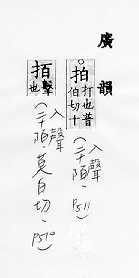 廣韻
。拍打也普伯切十
入聲(二十陌·P511)
擊也
入聲(二十陌·莫白切·P510)